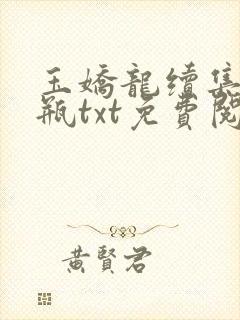 玉嬌龍續集
瓶txt免費閱
黃賢君